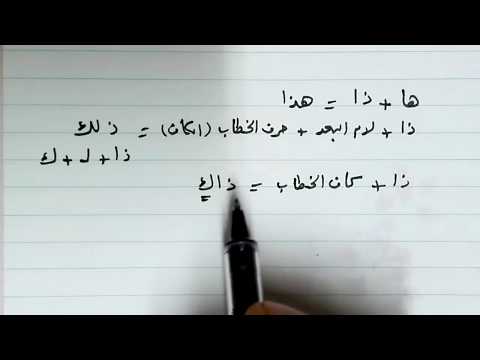 ها + ذا = هذا
ذا + لام البعد + حرف الخطاب (الكاف) = ذلك
ذا + لـ + ك
ذا + كاف الخطاب = ذاك